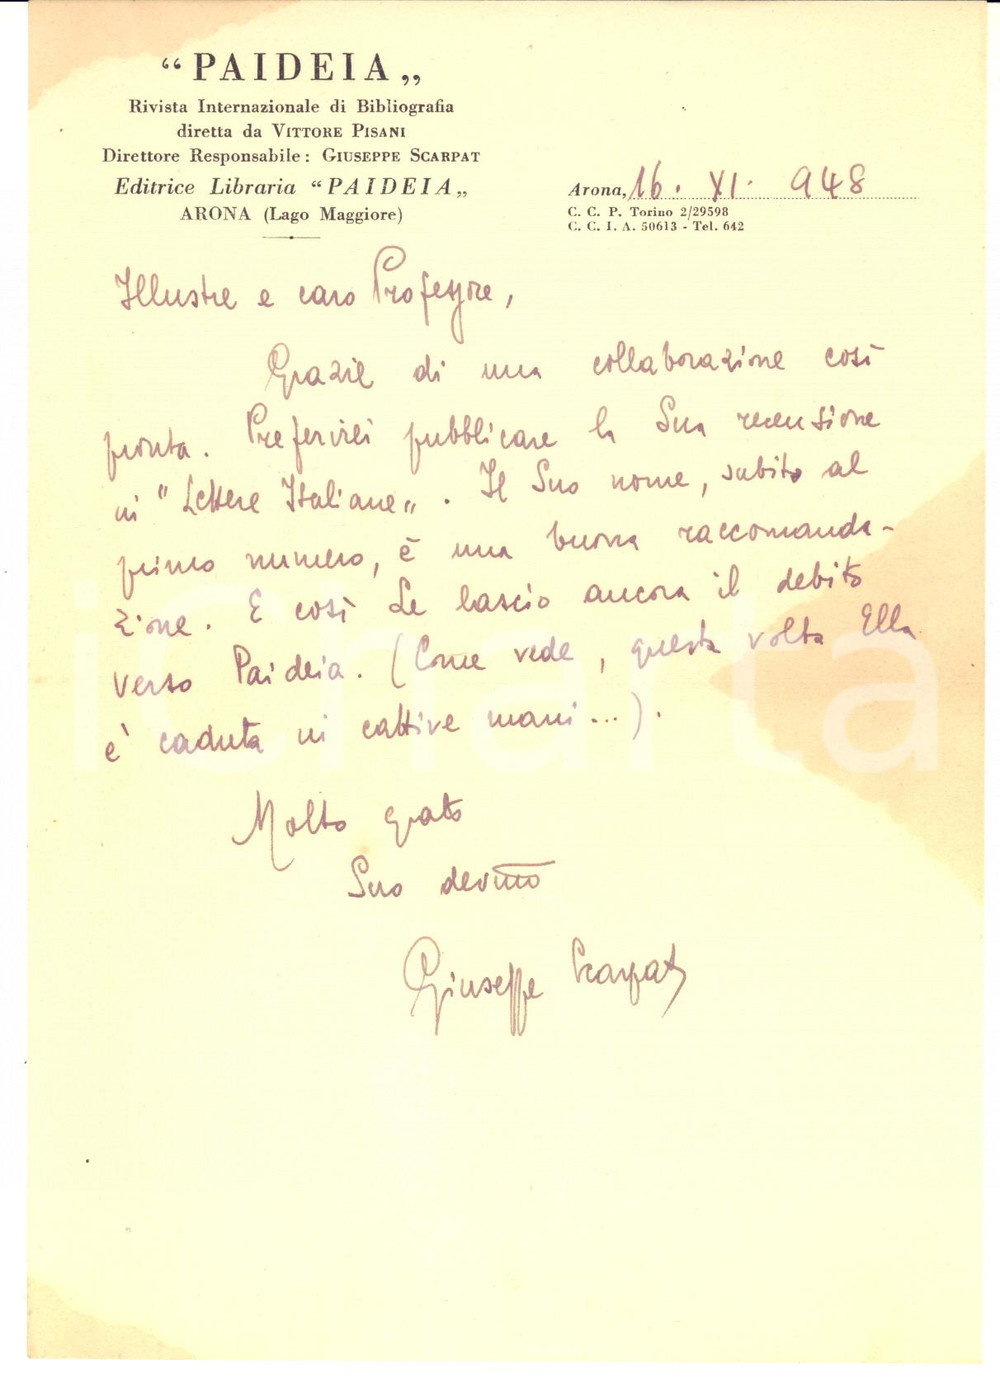 “PAIDEIA„
Rivista Internazionale di Bibliografia
diretta da VITTORE PISANI
Direttore Responsabile: GIUSEPPE SCARPAT
Editrice Libraria “PAIDEIA„
ARONA (Lago Maggiore)
Arona, 16. XI. 948
C. C. P. Torino 2/29598
C. C. I. A. 50613 - Tel. 642
Illustre e caro Professore,
Grazie di una collaborazione così
pronta. Preferirei pubblicare la Sua recensione
in "Lettere Italiane„. Il Suo nome, subito al
primo numero, è una buona raccomanda-
zione. E così Le lascio ancora il debito
verso Paideia. (Come vede, questa volta Ella
è caduta in cattive mani...).
Molto grato
Suo dev.mo
Giuseppe Scarpat
iCharta